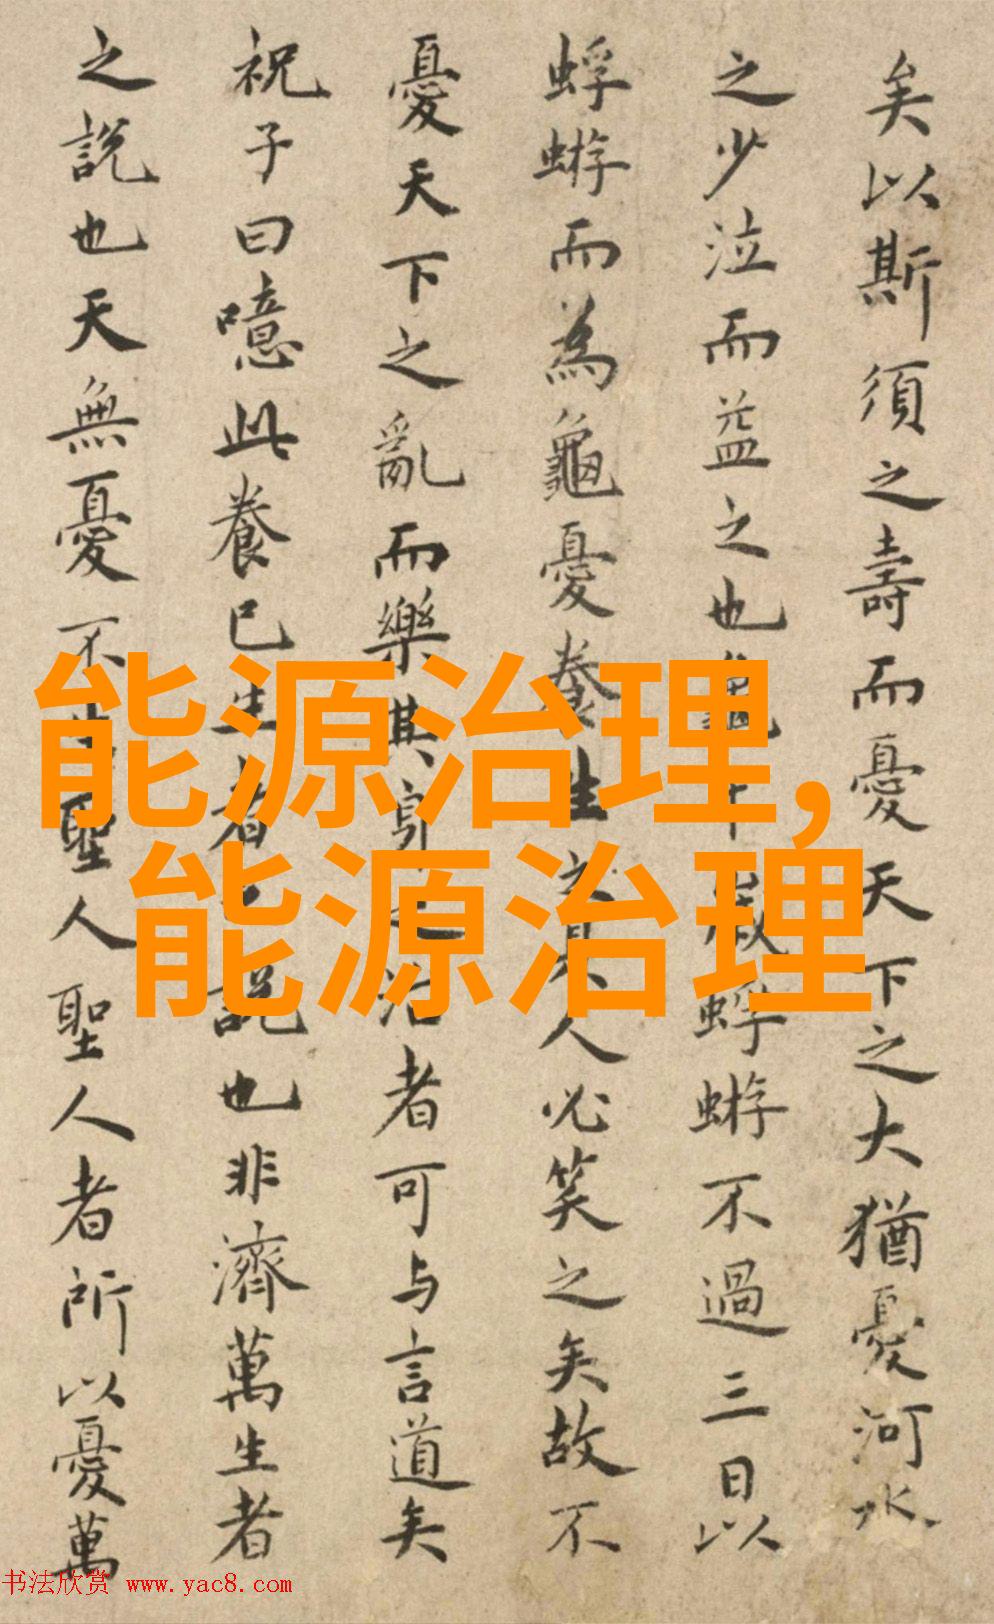 矣以斯須之壽而憂天下之大猶憂河水
之少泣而益之也龜千歲蜉蝣不過三日以
蜉蝣而為龜憂養生之具人必笑之矣故不
憂天下之亂而樂其身之治者可与言道矣
祝子曰噫此養己生者之說也非濟萬生者
之說也天無憂不生聖人聖人者所以憂萬
能源治理,
能源治理
书法欣赏 www.yac8.com